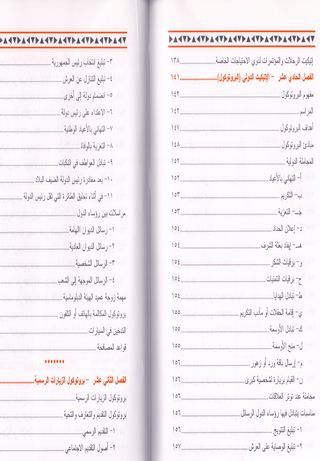 إتيكيت الرحلات والمؤتمرات لذوي الاحتياجات الخاصة ١٣٨
الفصل الحادي عشر - الإتيكيت الدولي (البروتوكول) ١٤١
مفهوم البروتوكول ١٤٢
المراسم ١٤٢
أهداف البروتوكول ١٤٧
مبادئ البروتوكول ١٤٨
المجاملة الدولية ١٥٢
أ- التهاني بالأعياد ١٥٢
ب- التكريم ١٥٣
جـ- التعزية ١٥٣
د- إعلان الحداد ١٥٣
هـ- إيفاد بعثة الشرف ١٥٣
و- برقيات الشكر ١٥٤
ح- برقيات التمنيات ١٥٤
ط- تبادل الهدايا ١٥٤
ي- إقامة الحفلات أو مآدب التكريم ١٥٥
ك- تبادل الأوسمة ١٥٥
ل- منح الأوسمة ١٥٥
م- إرسال باقة ورد أو زهور ١٥٦
ن- القيام بزيارة لشخصية كبرى ١٥٦
مجاملة عند توتر العلاقات ١٥٦
مناسبات يتبادل فيها رؤساء الدول الرسائل ١٥٦
١- تبليغ التتويج ١٥٦
٢- تبليغ الوصاية على العرش ١٥٧
٣- تبليغ انتخاب رئيس الجمهورية
٤- تبليغ التنازل عن العرش
٥- انضمام دولة إلى أخرى
٦- الاعتداء على رئيس دولة
٧- التهاني بالأعياد الوطنية
٨- التعزية بالوفاة
٩- تبادل العواطف في النكبات
١٠- بعد مغادرة رئيس الدولة الضيف البلاد
١١- في أثناء تحليق الطائرة التي تقل رئيس الدولة
مراسلات بين رؤساء الدول
١- رسائل الديوان الهامة
٢- رسائل الديوان العادية
٣- الرسائل الشخصية
٤- الرسائل الموجهة إلى الشعب
مهمة زوجة عميد الهيئة الدبلوماسية
بروتوكول المكالمة بالهاتف أو التلفون
التدخين في السيارات
قواعد المصافحة
*******
الفصل الثاني عشر - بروتوكول الزيارات الرسمية
بروتوكول الزيارات الرسمية
بروتوكول التقديم والتعارف والتحية
١- التقديم الرسمي
٢- أصول التقديم الاجتماعي